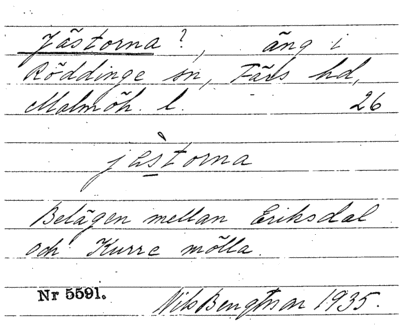 Jästorna?, äng i
Röddinge sn, Färs hd,
Malmöh. l. 26
jästorna
Belägen mellan Eriksdal
och Kurre mölla.
Nr 5591. Nils Bengtsson 1935.